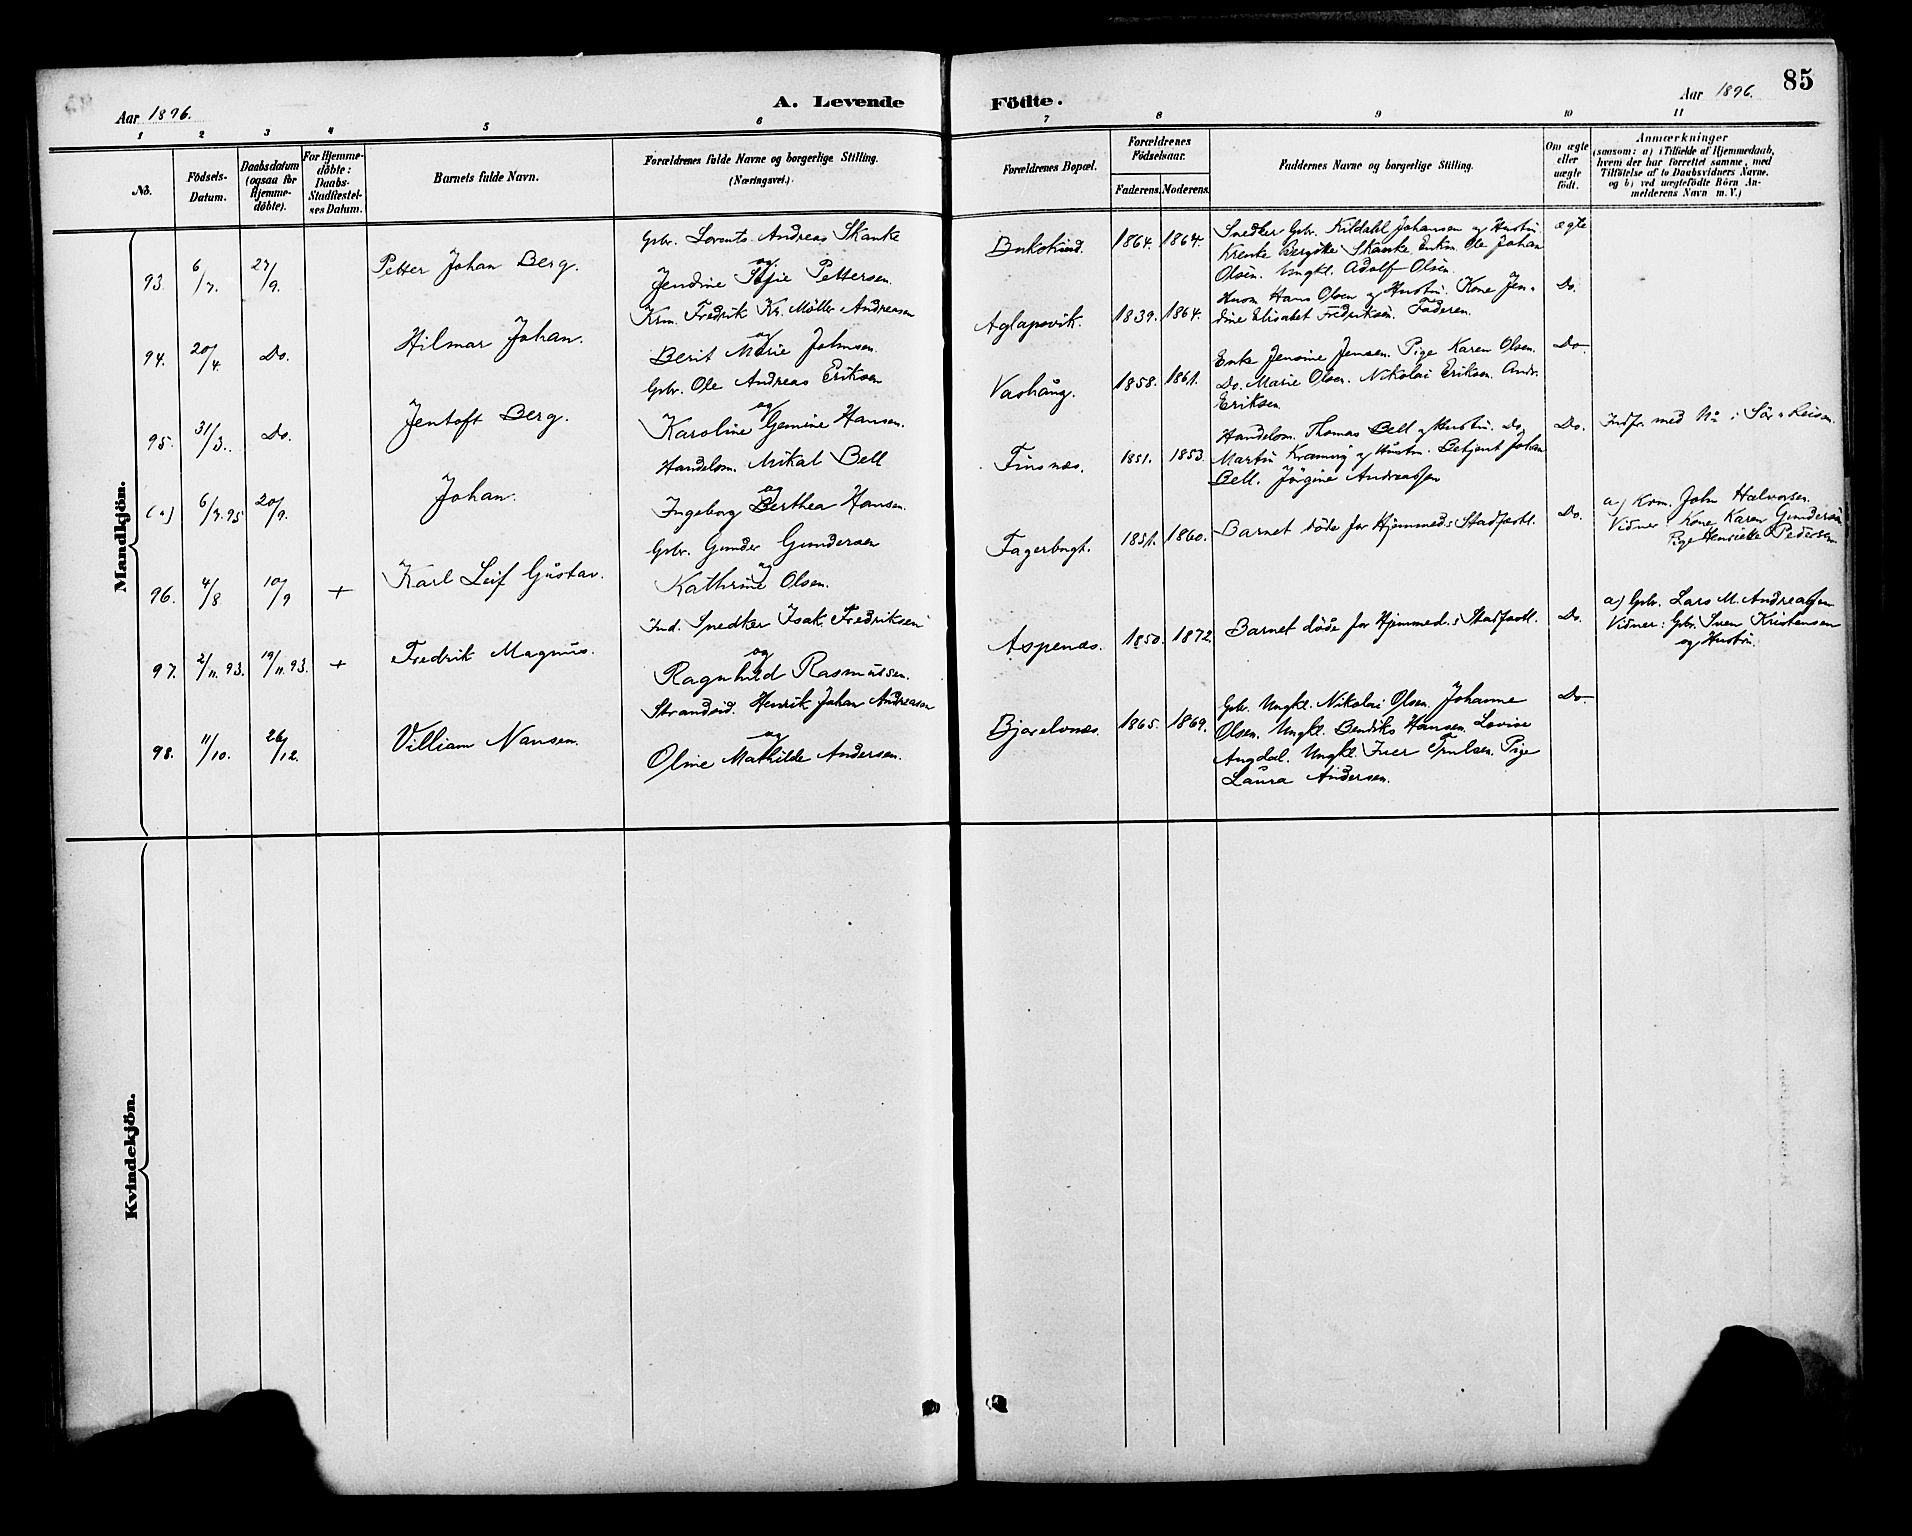 85
Aar 1896.
A. Levende Födte.
Aar 1896.
1 2 3 4 5 6 7 8 9 10 11
No.
Födsels-Datum.
Daabsdatum (ogsaa for Hjemme-döbte).
For Hjemme-döbte: Daabs-Stadfæstel-ses Datum.
Barnets fulde Navn.
Forældrenes fulde Navne og borgerlige Stilling. (Næringsvei.)
Forældrenes Bopæl.
Forældrenes Födselsaar.
Faderens. Moderens.
Faddernes Navne og borgerlige Stilling.
Om ægte eller uægte födt.
Anmærkninger
(saasom: a) i Tilfælde af Hjemmedaab,
hvem der har forrettet samme, med
Tilföielse af to Daabsvidners Navne,
og b) ved uægtefödte Börn An-
melderens Navn m. V.)
Mandkjön.
93. 6/7. 27/9. Petter Johan Berg.
Gbr. Lorents Andreas Skanke
og
Jendine Pettersen.
1864. 1864.
Snedker Gbr. Kildahl Johansen og Hustru
Krente Bergitte Skanke. Enkm. Ole Johan
Olsen. Ungkl. Adolf Olsen.
ægte
94. 20/4. Do. Hilmar Johan.
Krm. Fredrik Kr. Möller Andreasen
og
Berit Marie Johnsen.
Aglapsvik. 1839. 1864.
Husm. Hans Olsen og Hustru. Kone Jen-
dine Elisabet Fredriksen. Faderen.
Do.
95. 31/3. Do. Jentoft Berg.
Gbr. Ole Andreas Eriksen
og
Karoline Gemine Hansen.
1858. 1861.
Enke Jensine Jensen. Pige Karen Olsen.
Do. Marie Olsen. Nikolai Eriksen. Andr.
Eriksen.
Do.
6/7.95 20/9. Johan.
Handelsm. Mikal Bell
og
Ingeborg Berthea Hansen.
Finsnæs. 1851. 1853.
Handelsm. Thomas Bell og Hustru. Do.
Martin og Hustru. Betjent Johan
Bell. Jörgine Andreassen
Do.
Indfr. med No i
96. 4/8. 10/9 + Karl Leif Gustav.
Gbr. Gunder Gundersen
og
Kathrine Olsen.
Fagerbugt. 1851. 1860.
Barnet döde för Hjemmed:s Stadfæstl.
Do.
a) Krm. John Halvorsen.
Vidner: Kone Karen Gundersen
Pige Henriette Pedersen
97. 2/11.93. 19/11.93. + Fredrik Magnus.
Ind. Snedker Isak Fredriksen
og
Ragnhild Rasmussen.
Aspenæs. 1850. 1872.
Barnet döde för Hjemmed:s Stadfæstl.
Do.
a) Gbr. Lars M. Andreassen
Vidner: Gbr. Sven Kristensen
og Hustru.
98. 11/10. 26/12. Villiam Nansen.
Strandsid. Henrik Johan Andreasen
og
Oline Mathilde Andersen.
Bjorelvnæs. 1865. 1869.
Gbr. Ungkl. Nikolai Olsen. Johanne
Olsen. Ungkl. Bendiks Hansen. Lovise
Angdal. Ungkl. Iver Pige
Laura Andersen.
Do.
Kvindekjön.